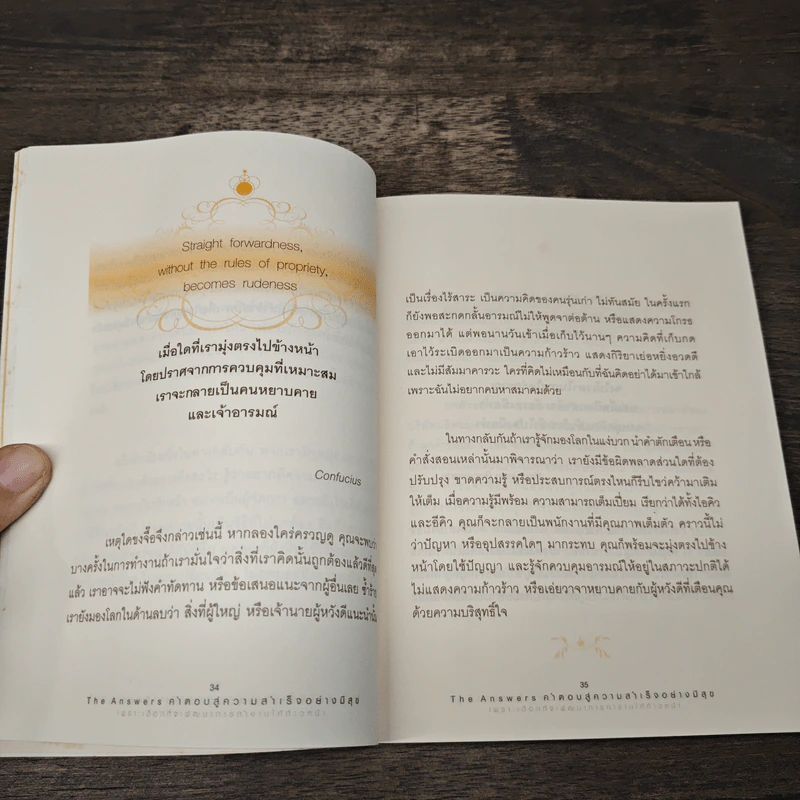 Straight forwardness,
without the rules of propriety,
becomes rudeness
เมื่อใดที่เรามุ่งตรงไปข้างหน้า
โดยปราศจากการควบคุมที่เหมาะสม
เราจะกลายเป็นคนหยาบคาย
และเจ้าอารมณ์
Confucius
เหตุใดขงจื๊อจึงกล่าวเช่นนี้ หากลองใคร่ครวญดู คุณจะพบว่า
บางครั้งในการทำงานถ้าเรามั่นใจว่าสิ่งที่เราคิดนั้นถูกต้องแล้วดีที่สุด
แล้ว เราอาจจะไม่ฟังคำทัดทาน หรือข้อเสนอแนะจากผู้อื่นเลย ซ้ำร้าย
เรายังมองโลกในด้านลบว่า สิ่งที่ผู้ใหญ่ หรือเจ้านายผู้หวังดีแนะนำนั้น
34
The Answers คำตอบสู่ความสำเร็จอย่างมีสุข
เป็นเรื่องไร้สาระ เป็นความคิดของคนรุ่นเก่า ไม่ทันสมัย ในครั้งแรก
ก็ยังพอสะกดกลั้นอารมณ์ไม่ให้พูดจาต่อต้าน หรือแสดงความโกรธ
ออกมาได้ แต่พอนานวันเข้าเมื่อเก็บไว้นานๆ ความคิดที่เก็บกด
เอาไว้ระเบิดออกมาเป็นความก้าวร้าว แสดงกิริยาเย่อหยิ่งอวดดี
และไม่มีสัมมาคารวะ ใครที่คิดไม่เหมือนกับที่ฉันคิดอย่าได้มาเข้าใกล้
เพราะฉันไม่อยากคบหาสมาคมด้วย
ในทางกลับกันถ้าเรารู้จักมองโลกในแง่บวก นำคำตักเตือน หรือ
คำสั่งสอนเหล่านั้นมาพิจารณาว่า เรายังมีข้อผิดพลาดส่วนใดที่ต้อง
ปรับปรุง ขาดความรู้ หรือประสบการณ์ตรงไหนก็รีบไขว่คว้ามาเติม
ให้เต็ม เมื่อความรู้มีพร้อม ความสามารถเต็มเปี่ยม เรียกว่าได้ทั้งไอคิว
และอีคิว คุณก็จะกลายเป็นพนักงานที่มีคุณภาพเต็มตัว คราวนี้ไม่
ว่าปัญหา หรืออุปสรรคใดๆ มากระทบ คุณก็พร้อมจะมุ่งตรงไปข้าง
หน้าโดยใช้ปัญญา และรู้จักควบคุมอารมณ์ให้อยู่ในสภาวะปกติได้
ไม่แสดงความก้าวร้าว หรือเอ่ยวาจาหยาบคายกับผู้หวังดีที่เตือนคุณ
ด้วยความบริสุทธิ์ใจ
35
The Answers คำตอบสู่ความสำเร็จอย่างมีสุข